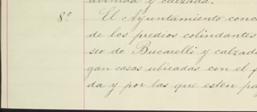 avenida y calzada.
8º El Ayuntamiento conc
de los predios colindantes
seo de Bucareli y calzad
gan casas ubicadas con el f
da y por las que esten pa